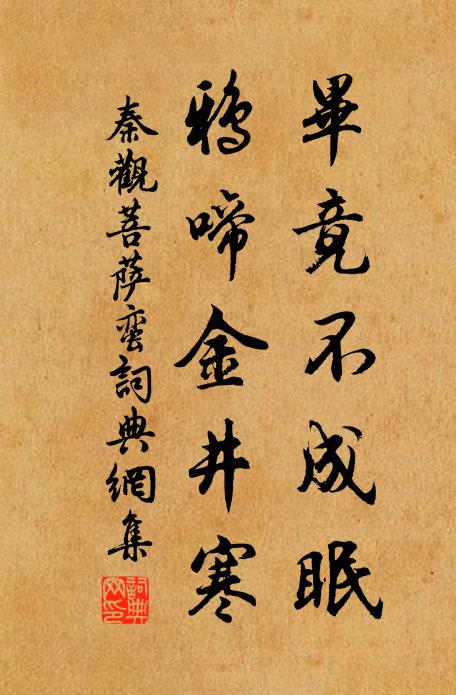 畢竟不成眠
鴉啼金井寒
秦觀菩薩蠻詞典網集
詞典網印